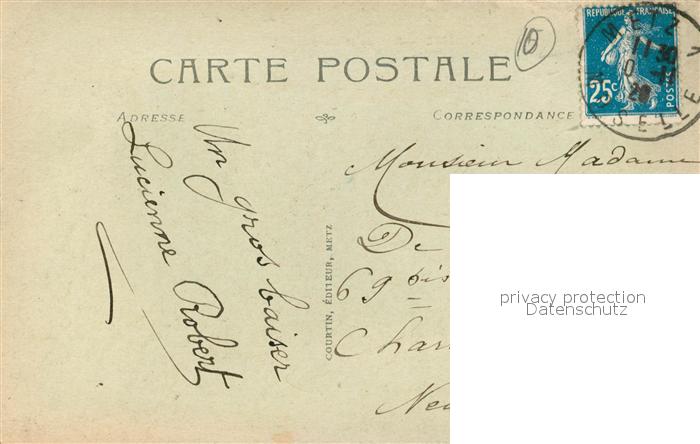 REPUBLIQUE FRANÇAISE
25c
POSTES
METZ
11 30
CARTE POSTALE
ADRESSE
CORRESPONDANCE
Un gros baiser
Lucienne Robert
COURTIN, ÉDITEUR, METZ
Monsieur Madame
De
69 bis
Char
Neu
privacy protection
Datenschutz